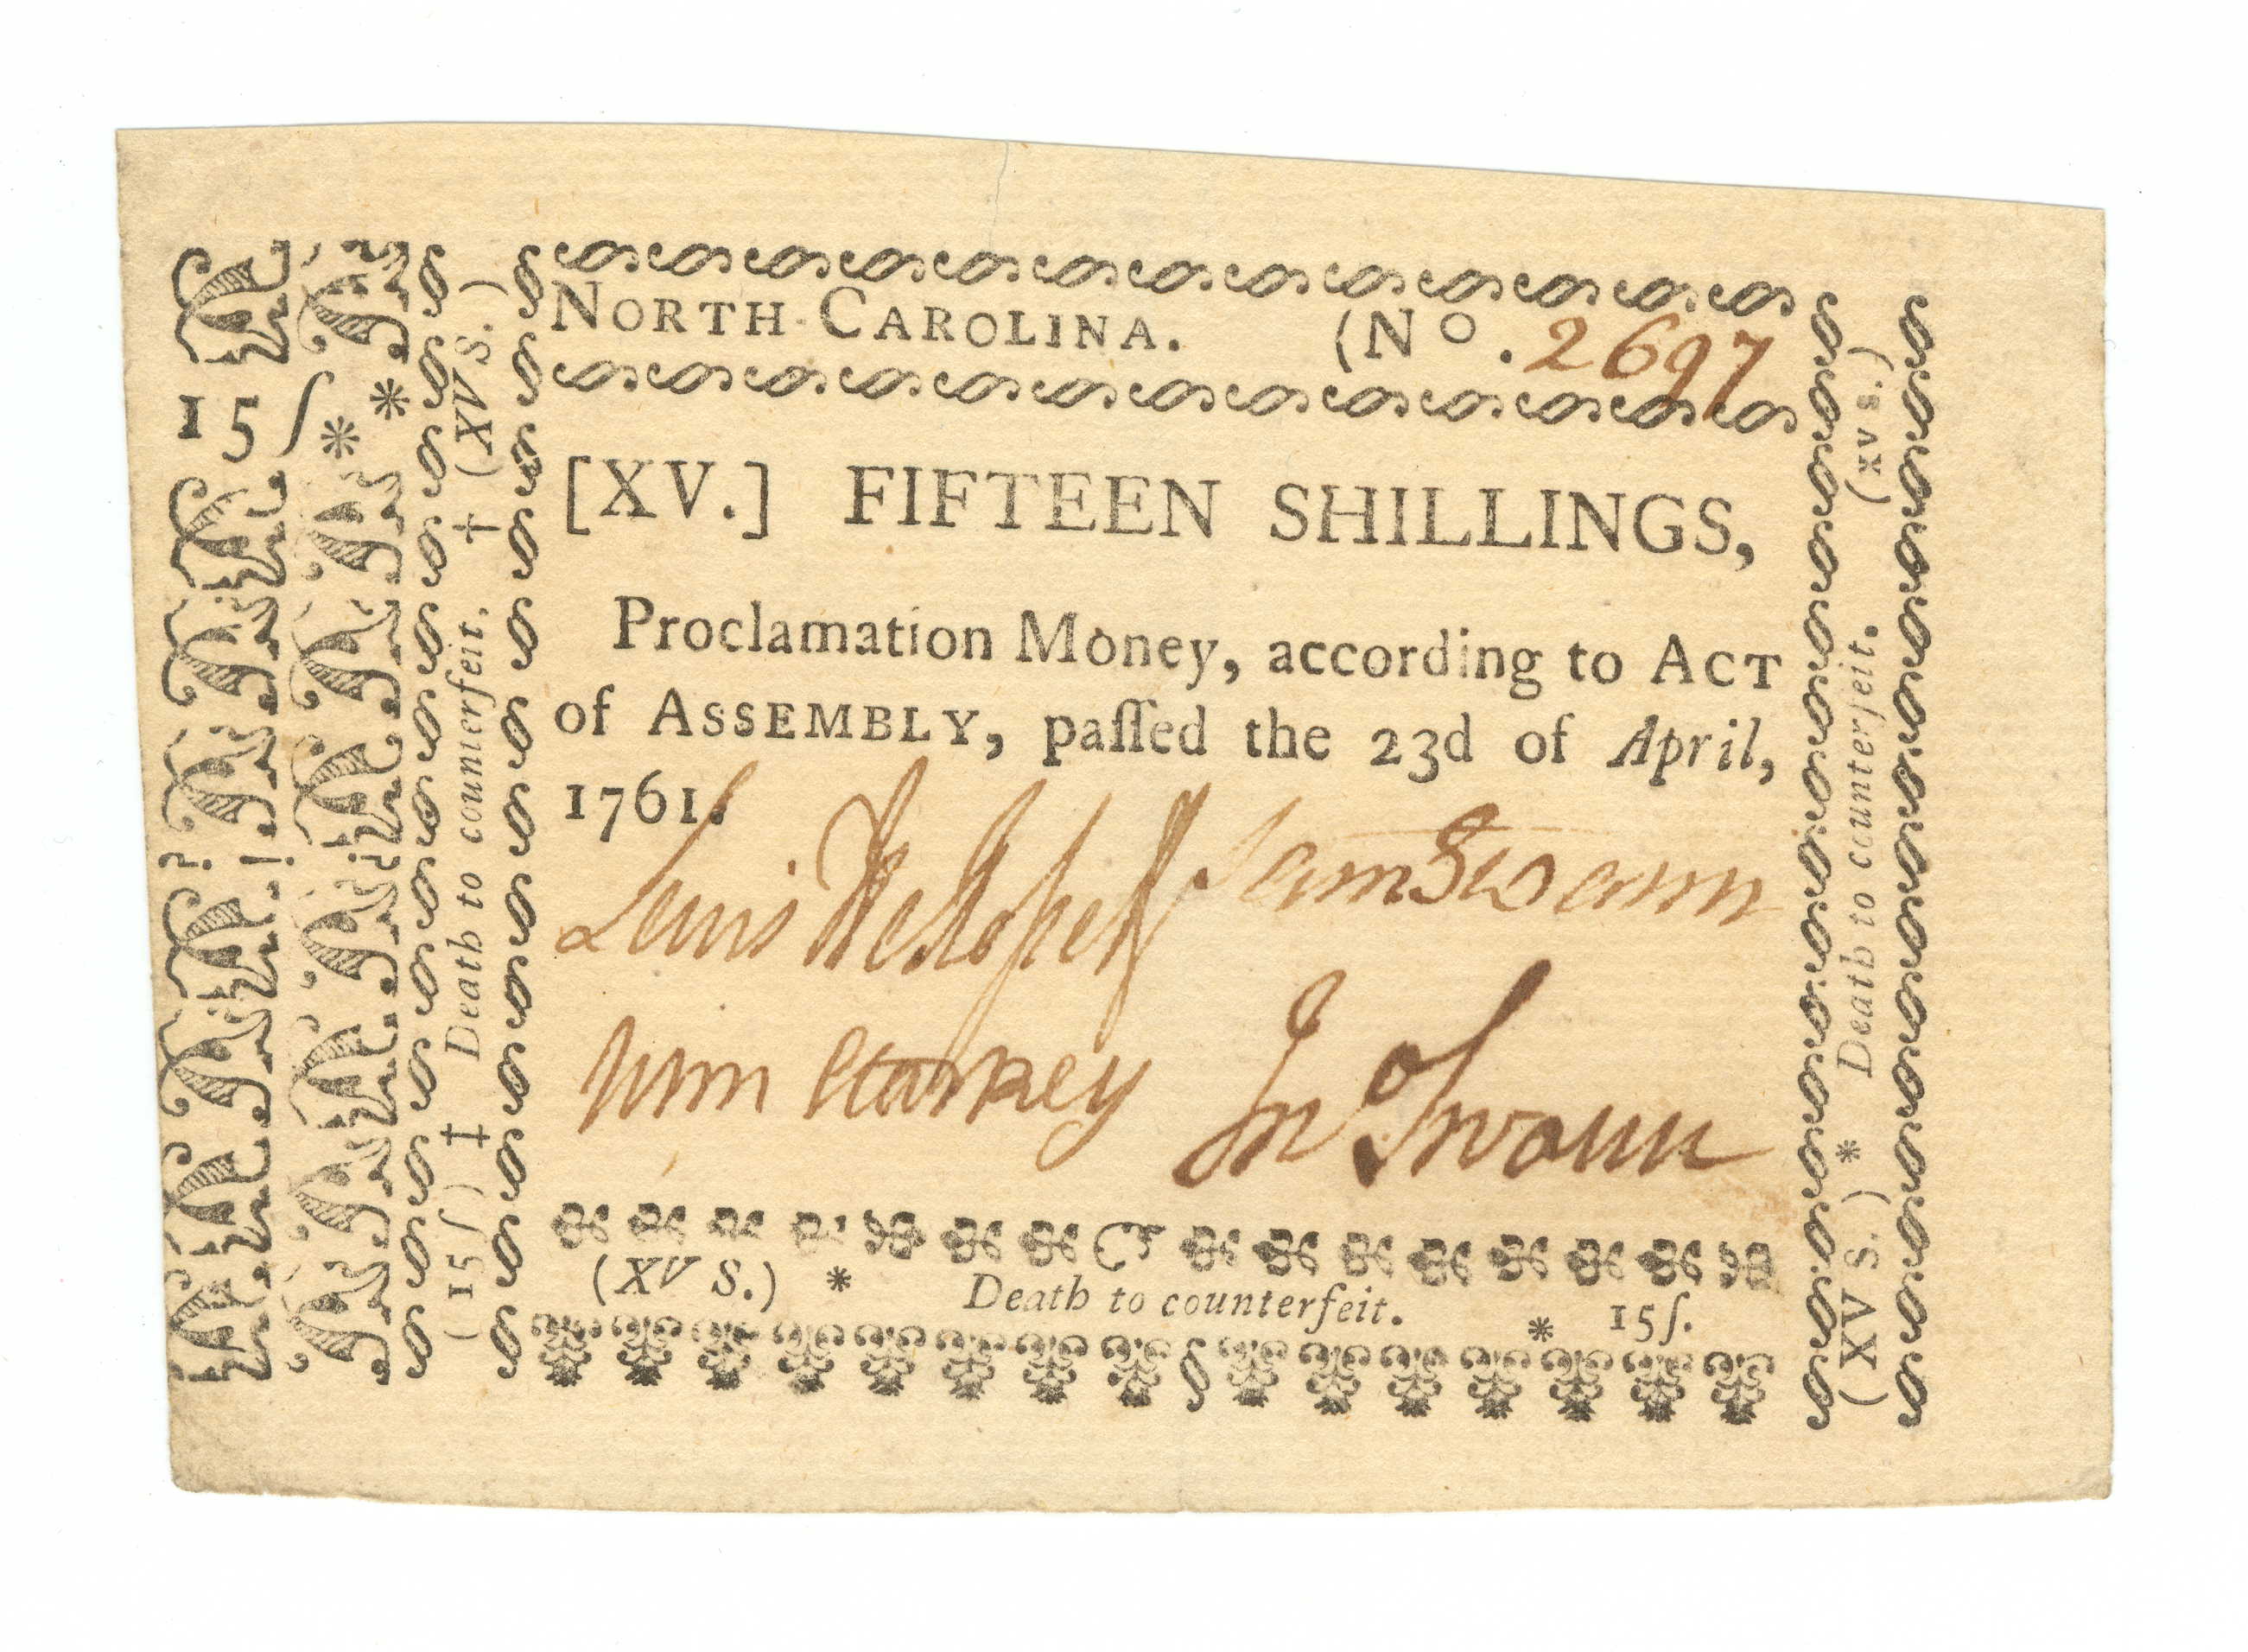 NORTH CAROLINA. (No. 2697
[XV.] FIFTEEN SHILLINGS,
Proclamation Money, according to ACT
of ASSEMBLY, paſſed the 23d of April,
1761.
Lewis DeRosset Sam Swann
Wm Starkey Jno Swann
(XV S.) * Death to counterfeit. * 15ſ.
15ſ
* *
(15ſ) ‡ Death to counterfeit. † (XV S.)
(XV S.) * Death to counterfeit. (XV S.)